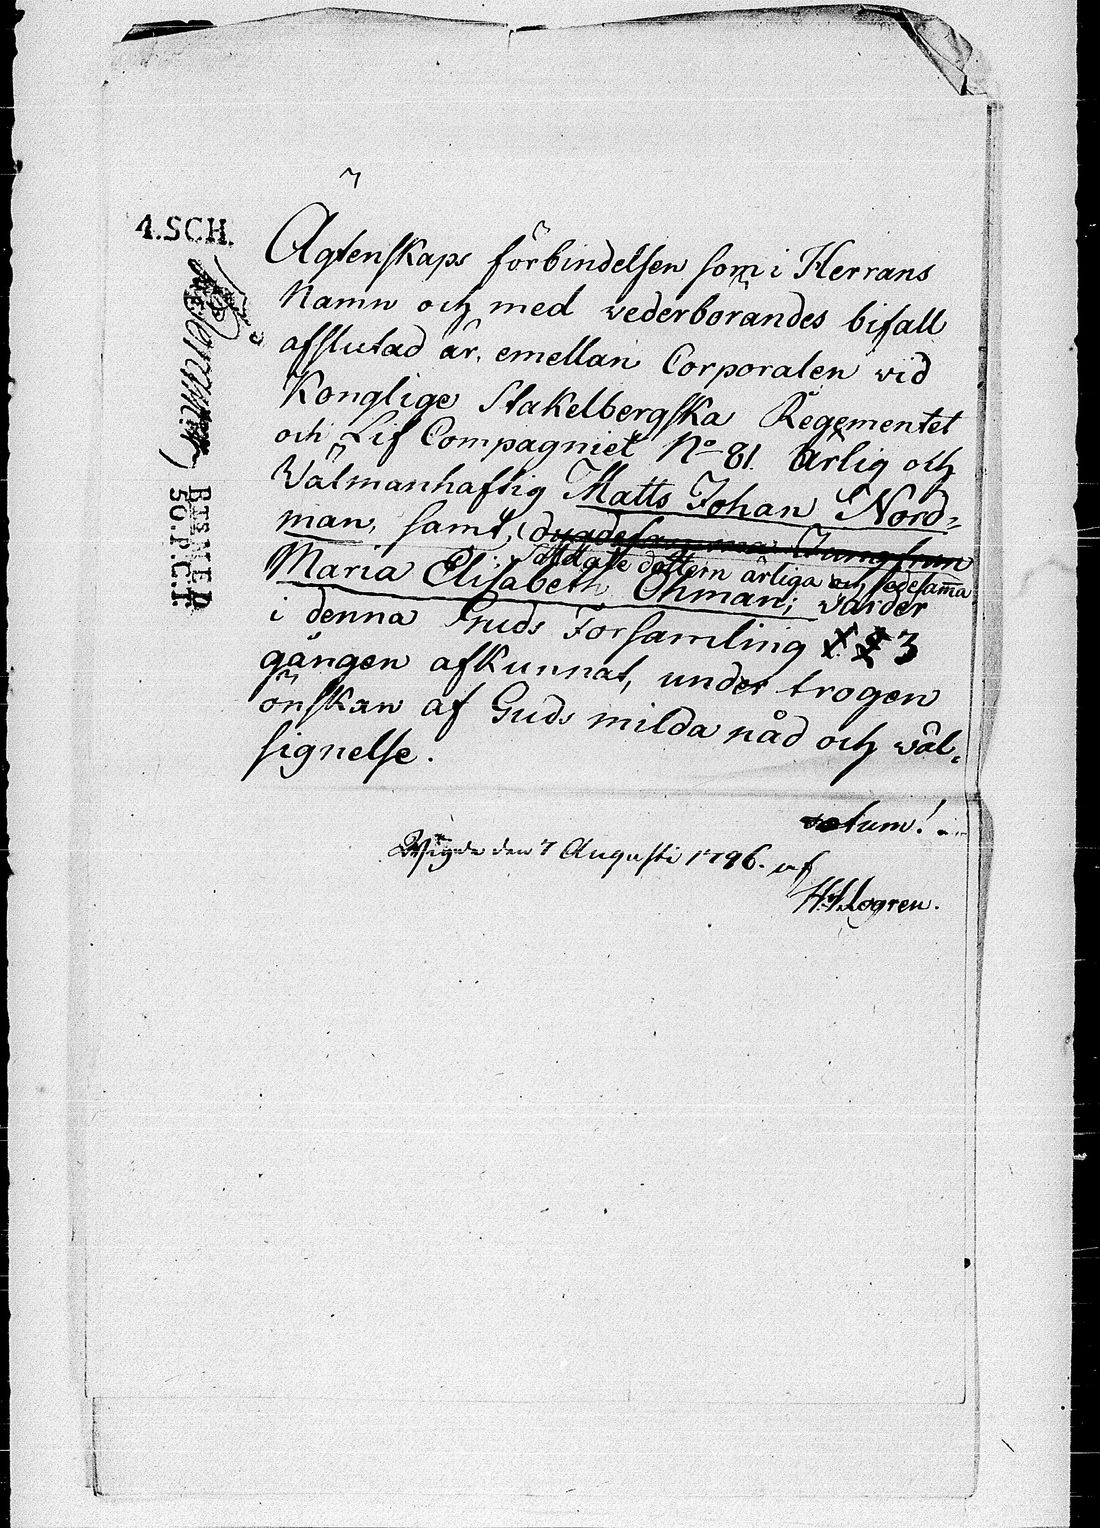 4.SCH.
BTSNER
50.P.C.T.
Ägtenskaps förbindelsen som i Herrans
Namn och med wederbörandes bifall
afslutad är, emellan Corporalen wid
Konglige Stakelbergska Regementet
och Lif Compagniet No 81. Ärlig och
Wälmanhaftig Matts Johan Nord-
man, samt, dygdesamma Jungfrun
dottern ärliga och sedesamma
Maria Elisabeth Öhman; warder
i denna Guds Församling 3
gången afkunnat, under trogen
önskan af Guds milda nåd och wäl-
signelse.
votum!
Wigde den 7 Augusti 1796. af